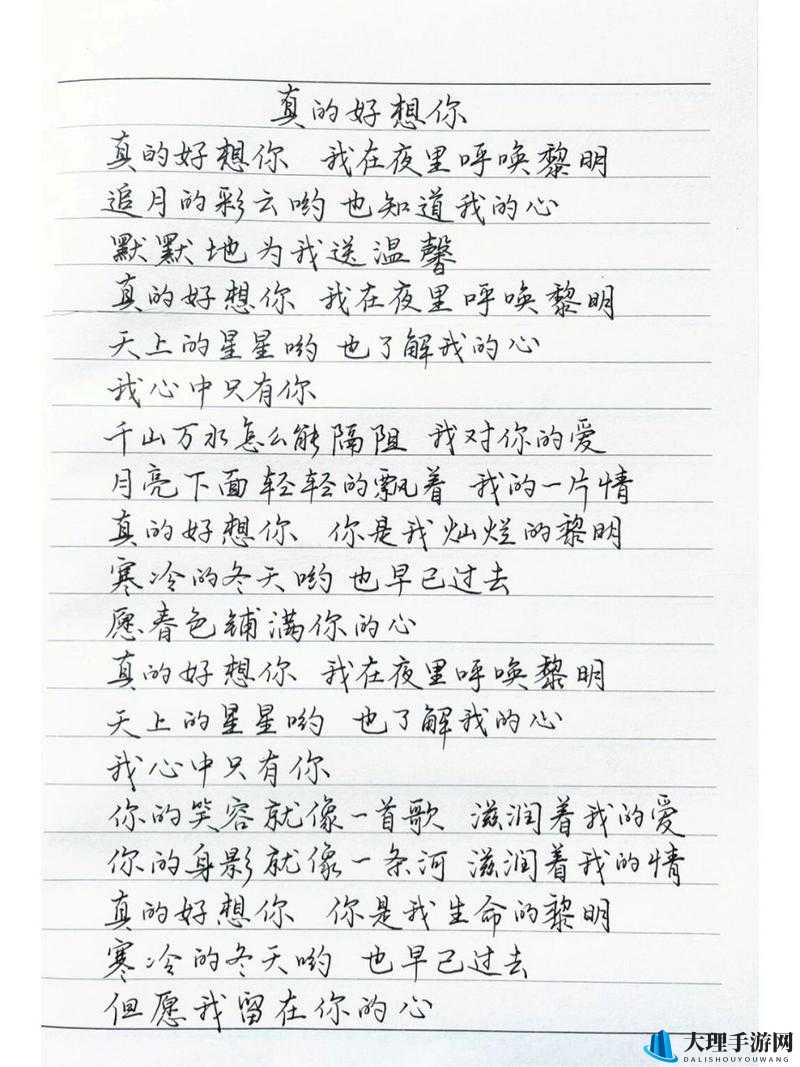 真的好想你
真的好想你 我在夜里呼唤黎明
追月的彩云哟 也知道我的心
默默地为我送温馨
真的好想你 我在夜里呼唤黎明
天上的星星哟 也了解我的心
我心中只有你
千山万水怎么能隔阻 我对你的爱
月亮下面轻轻的飘着 我的一片情
真的好想你 你是我灿烂的黎明
寒冷的冬天哟 也早已过去
愿春色铺满你的心
真的好想你 我在夜里呼唤黎明
天上的星星哟 也了解我的心
我心中只有你
你的笑容就像一首歌 滋润着我的爱
你的身影就像一条河 滋润着我的情
真的好想你 你是我生命的黎明
寒冷的冬天哟 也早已过去
但愿我留在你的心
大理手游网
DALISHOUYOUWANG